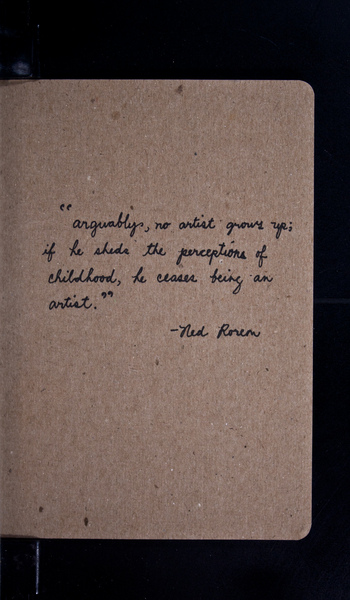 "arguably, no artist grows up;
if he sheds the perceptions of
childhood, he ceases being an
artist."
-Ned Rorem